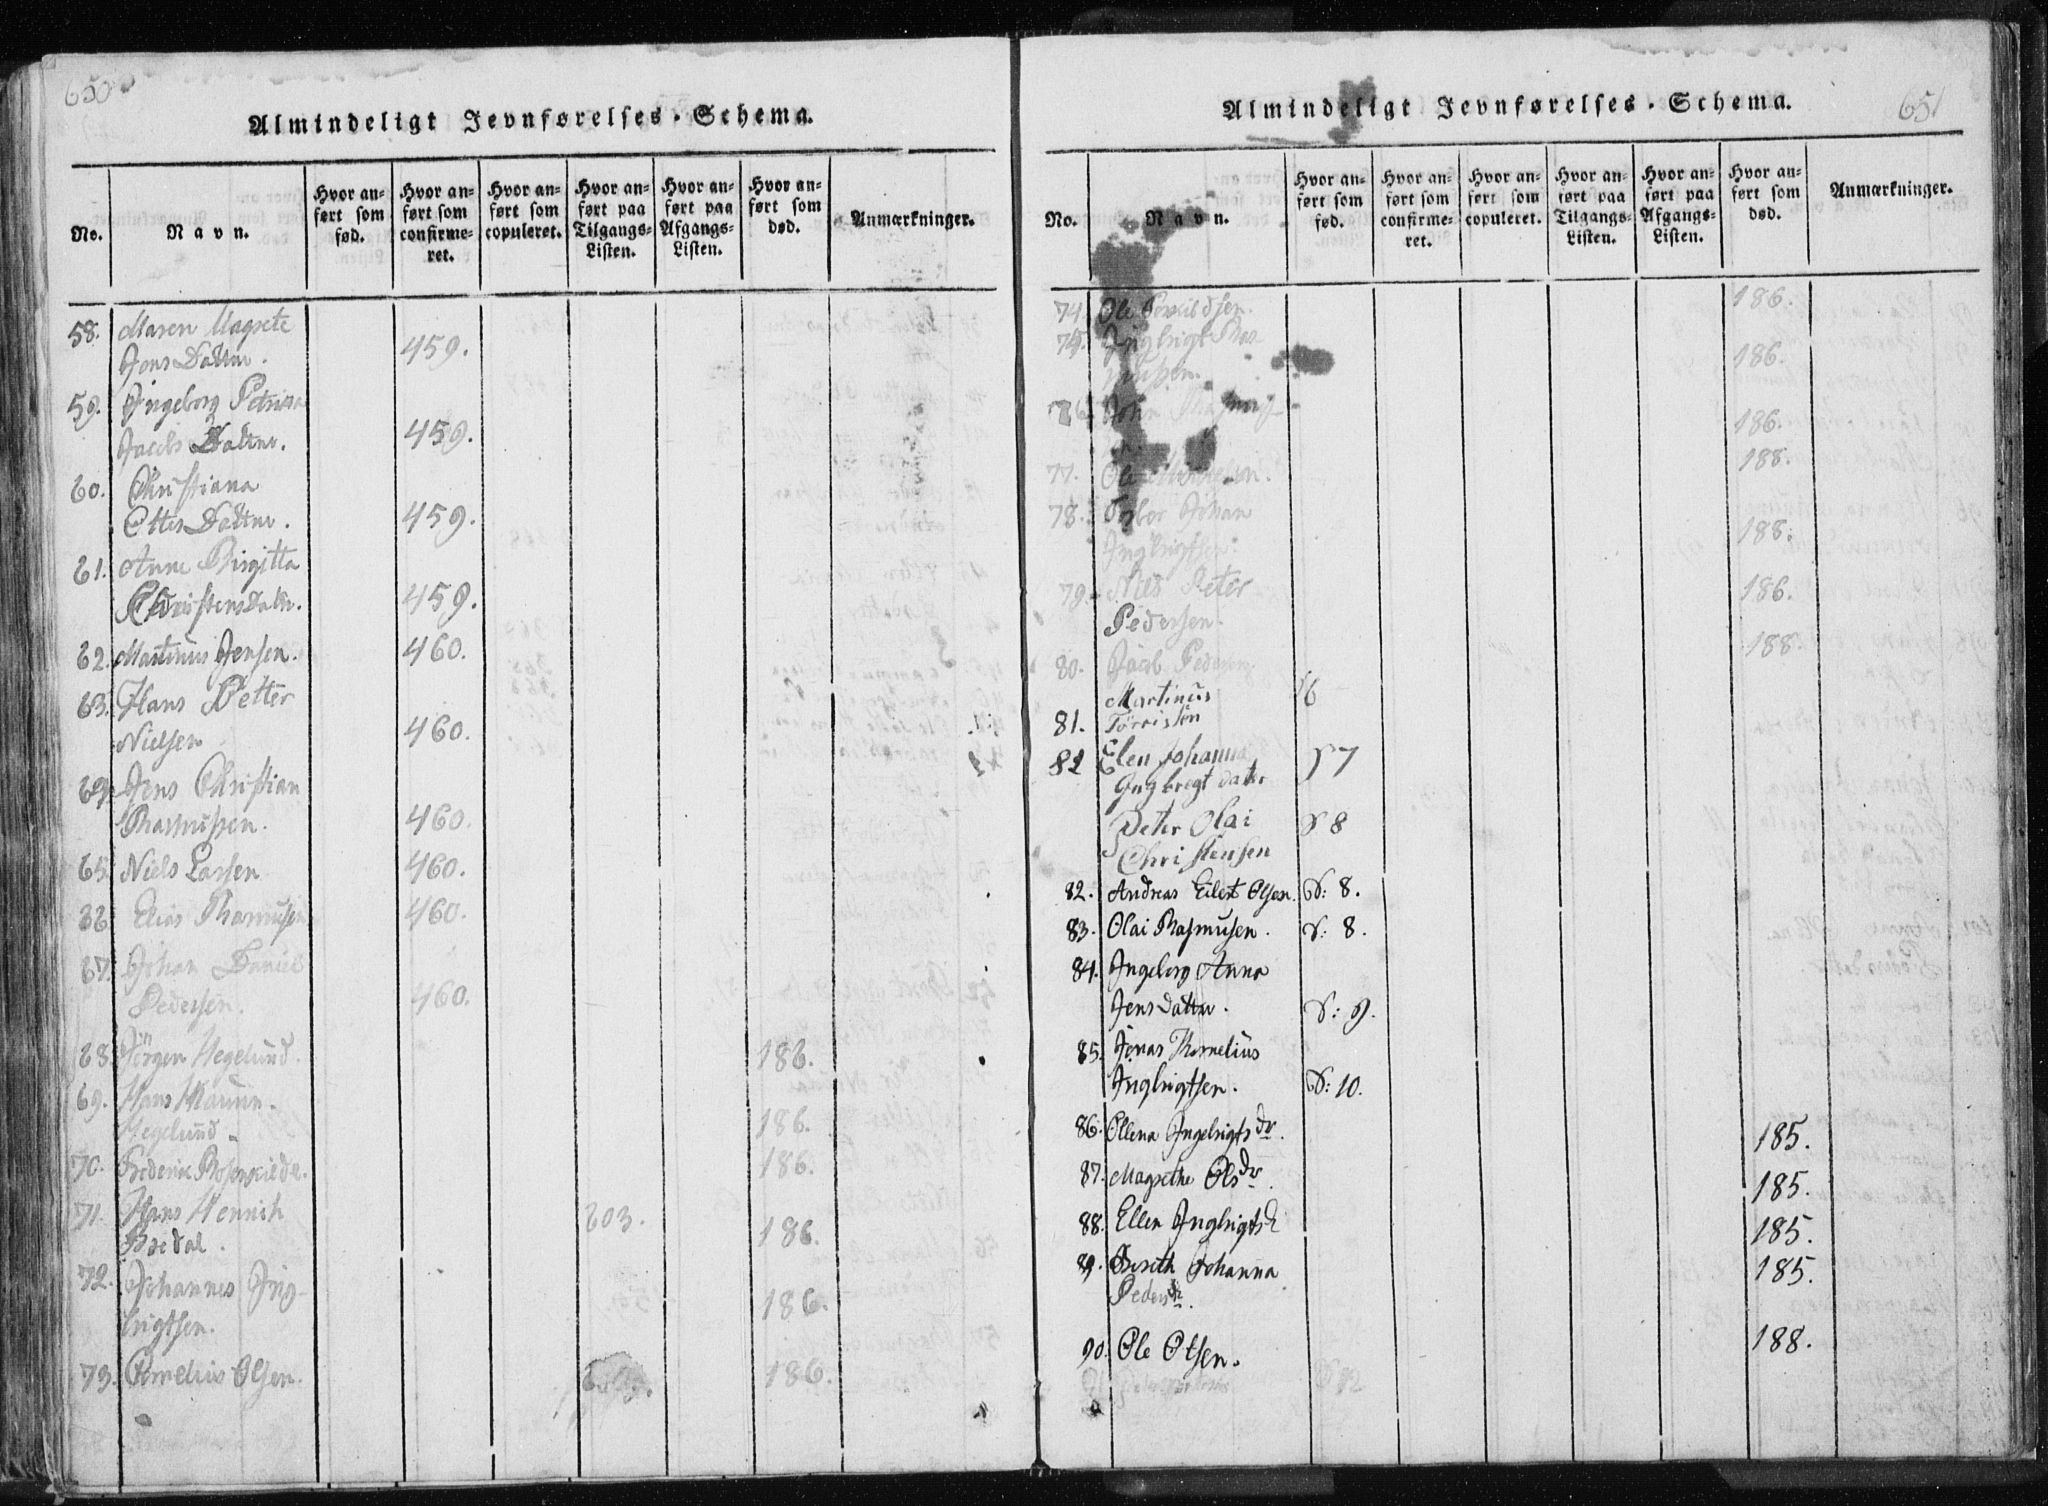 650
Almindeligt Jevnførelses-Schema.
No.
Navn.
Hvor an-
ført som
fød.
Hvor an-
ført som
confirme-
ret.
Hvor an-
ført som
copuleret.
Hvor an-
ført paa
Tilgangs-
Listen.
Hvor an-
ført paa
Afgangs-
Listen.
Hvor an-
ført som
død.
Anmærkninger.
58. Maren Magrete
Jens Datter. 459.
59. Ingeborg
Jacobs Datter. 459.
60. Christiana
Ottes Datter. 459.
61. Anne Birgitta
Christens Datr. 459.
62. Martinus Jensen. 460.
63. Hans Petter
Nielsen 460.
64. Jens Christian
Rasmussen. 460.
65. Niels Larsen 460.
66. Elias Rasmusen 460.
67. Johan Daniel
Pedersen. 460.
68. Jörgen Hegelund. 186.
69. Hans
Hegelund. 186.
70. 186.
71. Hans Henrich
603. 186.
72. Johannes Ing-
brigtsen. 186.
73. Cornelius Olsen. 186.
651
Almindeligt Jevnførelses-Schema.
No.
Navn.
Hvor an-
ført som
fød.
Hvor an-
ført som
confirme-
ret.
Hvor an-
ført som
copuleret.
Hvor an-
ført paa
Tilgangs-
Listen.
Hvor an-
ført paa
Afgangs-
Listen.
Hvor an-
ført som
død.
Anmærkninger.
74. Ole 186.
75. Ingbrigt Ras-
musen. 186.
76. John 186.
77. Ole 188.
78. Johan
Ingbrigtsen. 188.
79. Nils Peter
Pedersen. 186.
80. Jacob Pedersen 188.
Martinus 6
81. Törrisen
82 Elen Johanna 7
Ingbregt dater
Peter Olai 8
Christensen
82. Andreas Eilert Olsen. S: 8.
83. Olai Rasmusen. S: 8.
84. Ingeborg Anna
Jens Datter. S: 9.
85. Jonas Kornelius
Ingbrigtsen. S: 10.
86. Ellena Ingebrigts Dr. 185.
87. Magrethe Ols Dr. 185.
88. Ellen Ingbrigts 185.
89. Bereth Johanna 185.
Peders
90. Ole Olsen. 188.
91